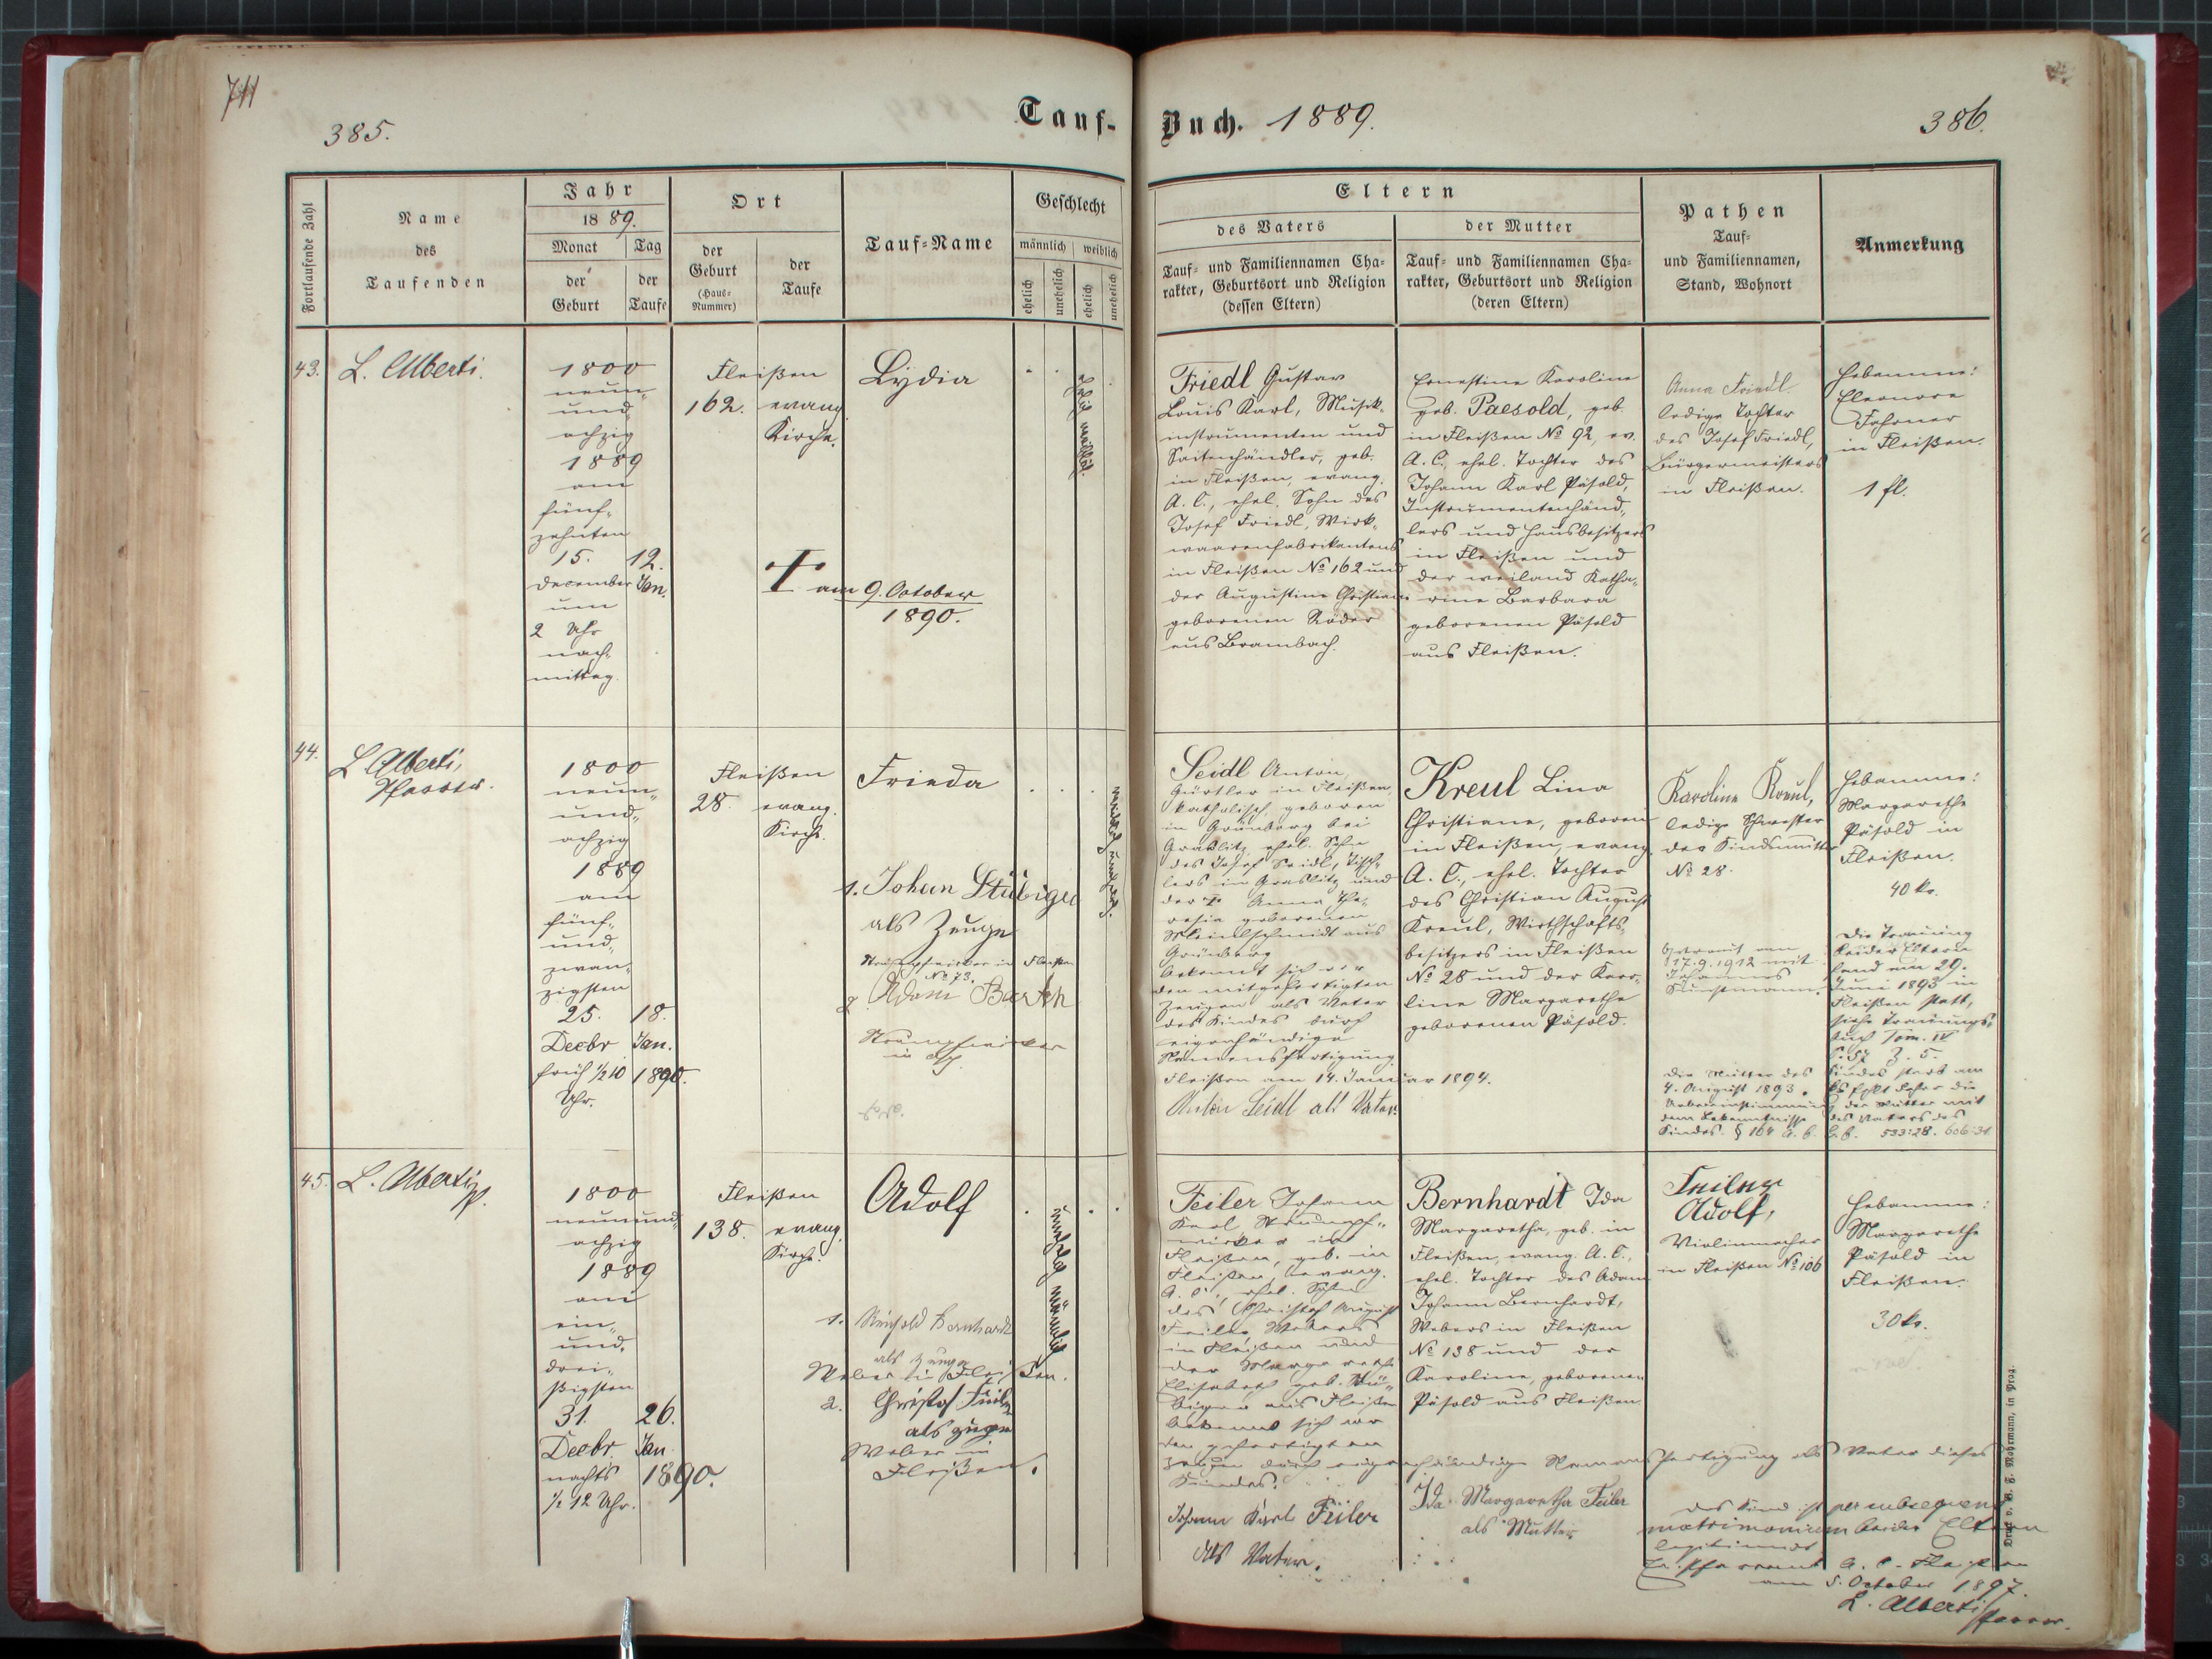 711
385.
Tauf-
Buch. 1889.
386.
Fortlaufende Zahl
Name
des
Taufenden
Jahr
1889.
Monat
Tag
der
Geburt
der
Taufe
Ort
der
Geburt
(Haus-
Nummer)
der
Taufe
Tauf-Name
Geschlecht
männlich
weiblich
ehelich
unehelich
ehelich
unehelich
Eltern
des Vaters
Tauf- und Familiennamen Cha-
rakter, Geburtsort und Religion
(dessen Eltern)
der Mutter
Tauf- und Familiennamen Cha-
rakter, Geburtsort und Religion
(deren Eltern)
Pathen
Tauf-
und Familiennamen,
Stand, Wohnort
Anmerkung
43.
L. Alberti.
1800
neun-
und
achzig
1889
am
fünf-
zehnten
15.
December
um
2 Uhr
nach-
mittag.
12.
Jan.
Fleißen
162.
evang.
Kirche.
Lydia
ehelich weiblich.
† am 9. October
1890.
Friedl Gustav
Louis Karl, Musik-
instrumenten und
Saitenhändler, geb.
in Fleißen, evang.
A. C., ehel. Sohn des
Josef Friedl, Wirk-
waarenfabrikantens
in Fleißen No 162 und
der Augustine Christiane
geborenen Röder
aus Brambach.
Ernestine Karoline
geb. Paesold, geb.
in Fleißen No 92, ev.
A. C., ehel. Tochter des
Johann Karl Päsold,
Instrumentenhänd-
lers und Hausbesitzers
in Fleißen und
der weiland Katha-
rine Barbara
geborenen Päsold
aus Fleißen.
Anna Friedl
ledige Tochter
des Josef Friedl,
Bürgermeisters
in Fleißen.
Hebamme:
Eleonore
Fassner
in Fleißen.
1 fl.
44.
L. Alberti,
Pfarrer.
1800
neun-
und-
achzig
1889
am
fünf-
und-
zwan-
zigsten
25.
Decbr
früh 1/2 10
Uhr.
18.
Jan.
1890.
Fleißen
28.
evang.
Kirche.
Frieda
weiblich unehelich.
1. Johan Stübiger
als Zeuge
Strumpfwirker in Fleißen
No 73.
2. Adam Barth
Strumpfwirker
in
Seidl Anton,
Gürtler in Fleißen,
katholisch, geboren
in Grünberg bei
Graslitz, ehel. Sohn
des Josef Seidl, Tisch-
lers in Graslitz und
der † Anna The-
resia geborenen
Meinlschmidt aus
Grünberg
bekennt sich vor
den mitgefertigten
Zeugen als Vater
des Kindes durch
eigenhändige
Namensfertigung
Fleißen am 14. Januar 1894.
Anton Seidl als Vater
Kreul Lina
Christiane, geboren
in Fleißen, evang.
A. C., ehel. Tochter
des Christian August
Kreul, Wirthschafts-
besitzers in Fleißen
No 28 und der Karo-
line Margarethe
geborenen Päsold.
Karoline Kreul,
ledige Schwester
der Kindsmutter
No 28.
Getraut am
17.9.1912 mit
Johannes
Hebamme:
Margarethe
Päsold in
Fleißen.
40 kr.
Die Trauung
beider Eltern
fand am 29.
Juni 1893 in
Fleißen statt,
siehe Trauungs-
buch Tom. IV
S. 57 Z. 5.
Die Mutter des Kindes starb am
4. August 1893. Es fehlt daher die
Uebereinstimmung der Mutter mit
dem Bekenntnisse des Vaters des
Kindes. § 164 a. b. G. B. 533:28. 606:31
45.
L. Alberti,
Pf.
1800
neunund-
achzig
1889
am
ein-
und-
drei-
ßigsten
31.
Decbr
nachts
1/2 12 Uhr.
26.
Jan.
1890.
Fleißen
138.
evang.
Kirche.
Adolf
unehelich männlich
1. Reinhold Bernhardt
als Zeuge
Weber in Fleißen.
2. Christof Feiler
als Zeuge
Weber in
Fleißen.
Feiler Johann
Karl, Strumpf-
wirker in
Fleißen, geb. in
Fleißen, evang.
A. C., ehel. Sohn
des Christof August
Feiler, Webers
in Fleißen und
der Margareth
Elisabeth geb. Stü-
biger aus Fleißen
bekennt sich vor
den gefertigten
Zeugen durch eigenhändige Namensfertigung als Vater dieses
Kindes.
Johann Karl Feiler
als Vater.
Bernhardt Ida
Margaretha, geb. in
Fleißen, evang. A. C.,
ehel. Tochter des Adam
Johann Bernhardt,
Webers in Fleißen
No 138 und der
Karoline, geborenen
Päsold aus Fleißen
Ida Margaretha Feiler
als Mutter.
Feiler
Adolf,
Violinmacher
in Fleißen No 106
Hebamme:
Margarethe
Päsold in
Fleißen.
30 kr.
Das Kind ist per subsequens
matrimonium beider Eltern
legitimirt
Ev. Pfarramt A. C. Fleißen
am 5. October 1897.
L. Alberti Pfarrer.
Druck v. A. H. Mohrmann, in Prag.